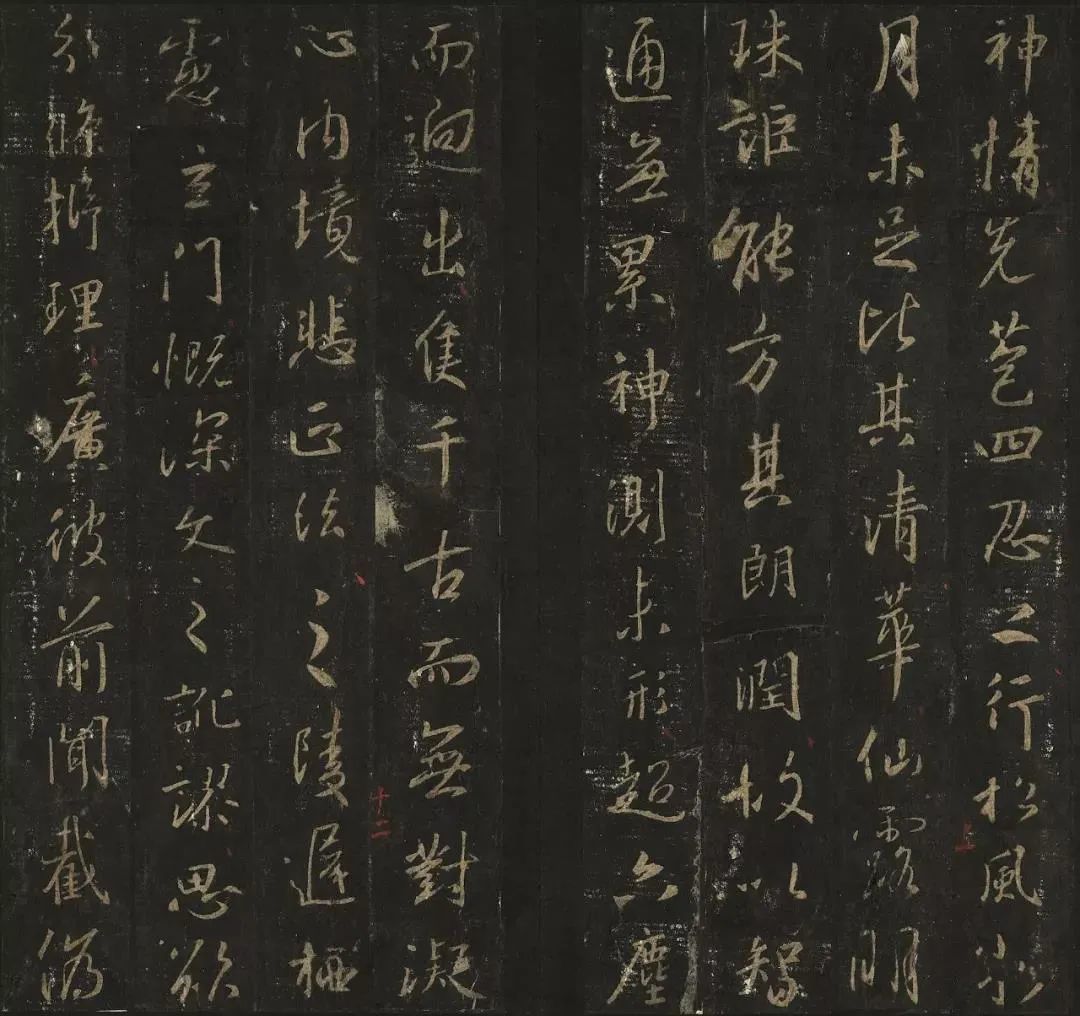 神情先苞四忍之行松風水
上
月未足比其清華仙露明
珠詎能方其朗潤故以智
通無累神測未形超六塵
而逈出隻千古而無對凝
十二
心內境悲正法之陵遲栖
慮玄門慨深文之訛謬思欲
分條析理廣彼前聞截偽